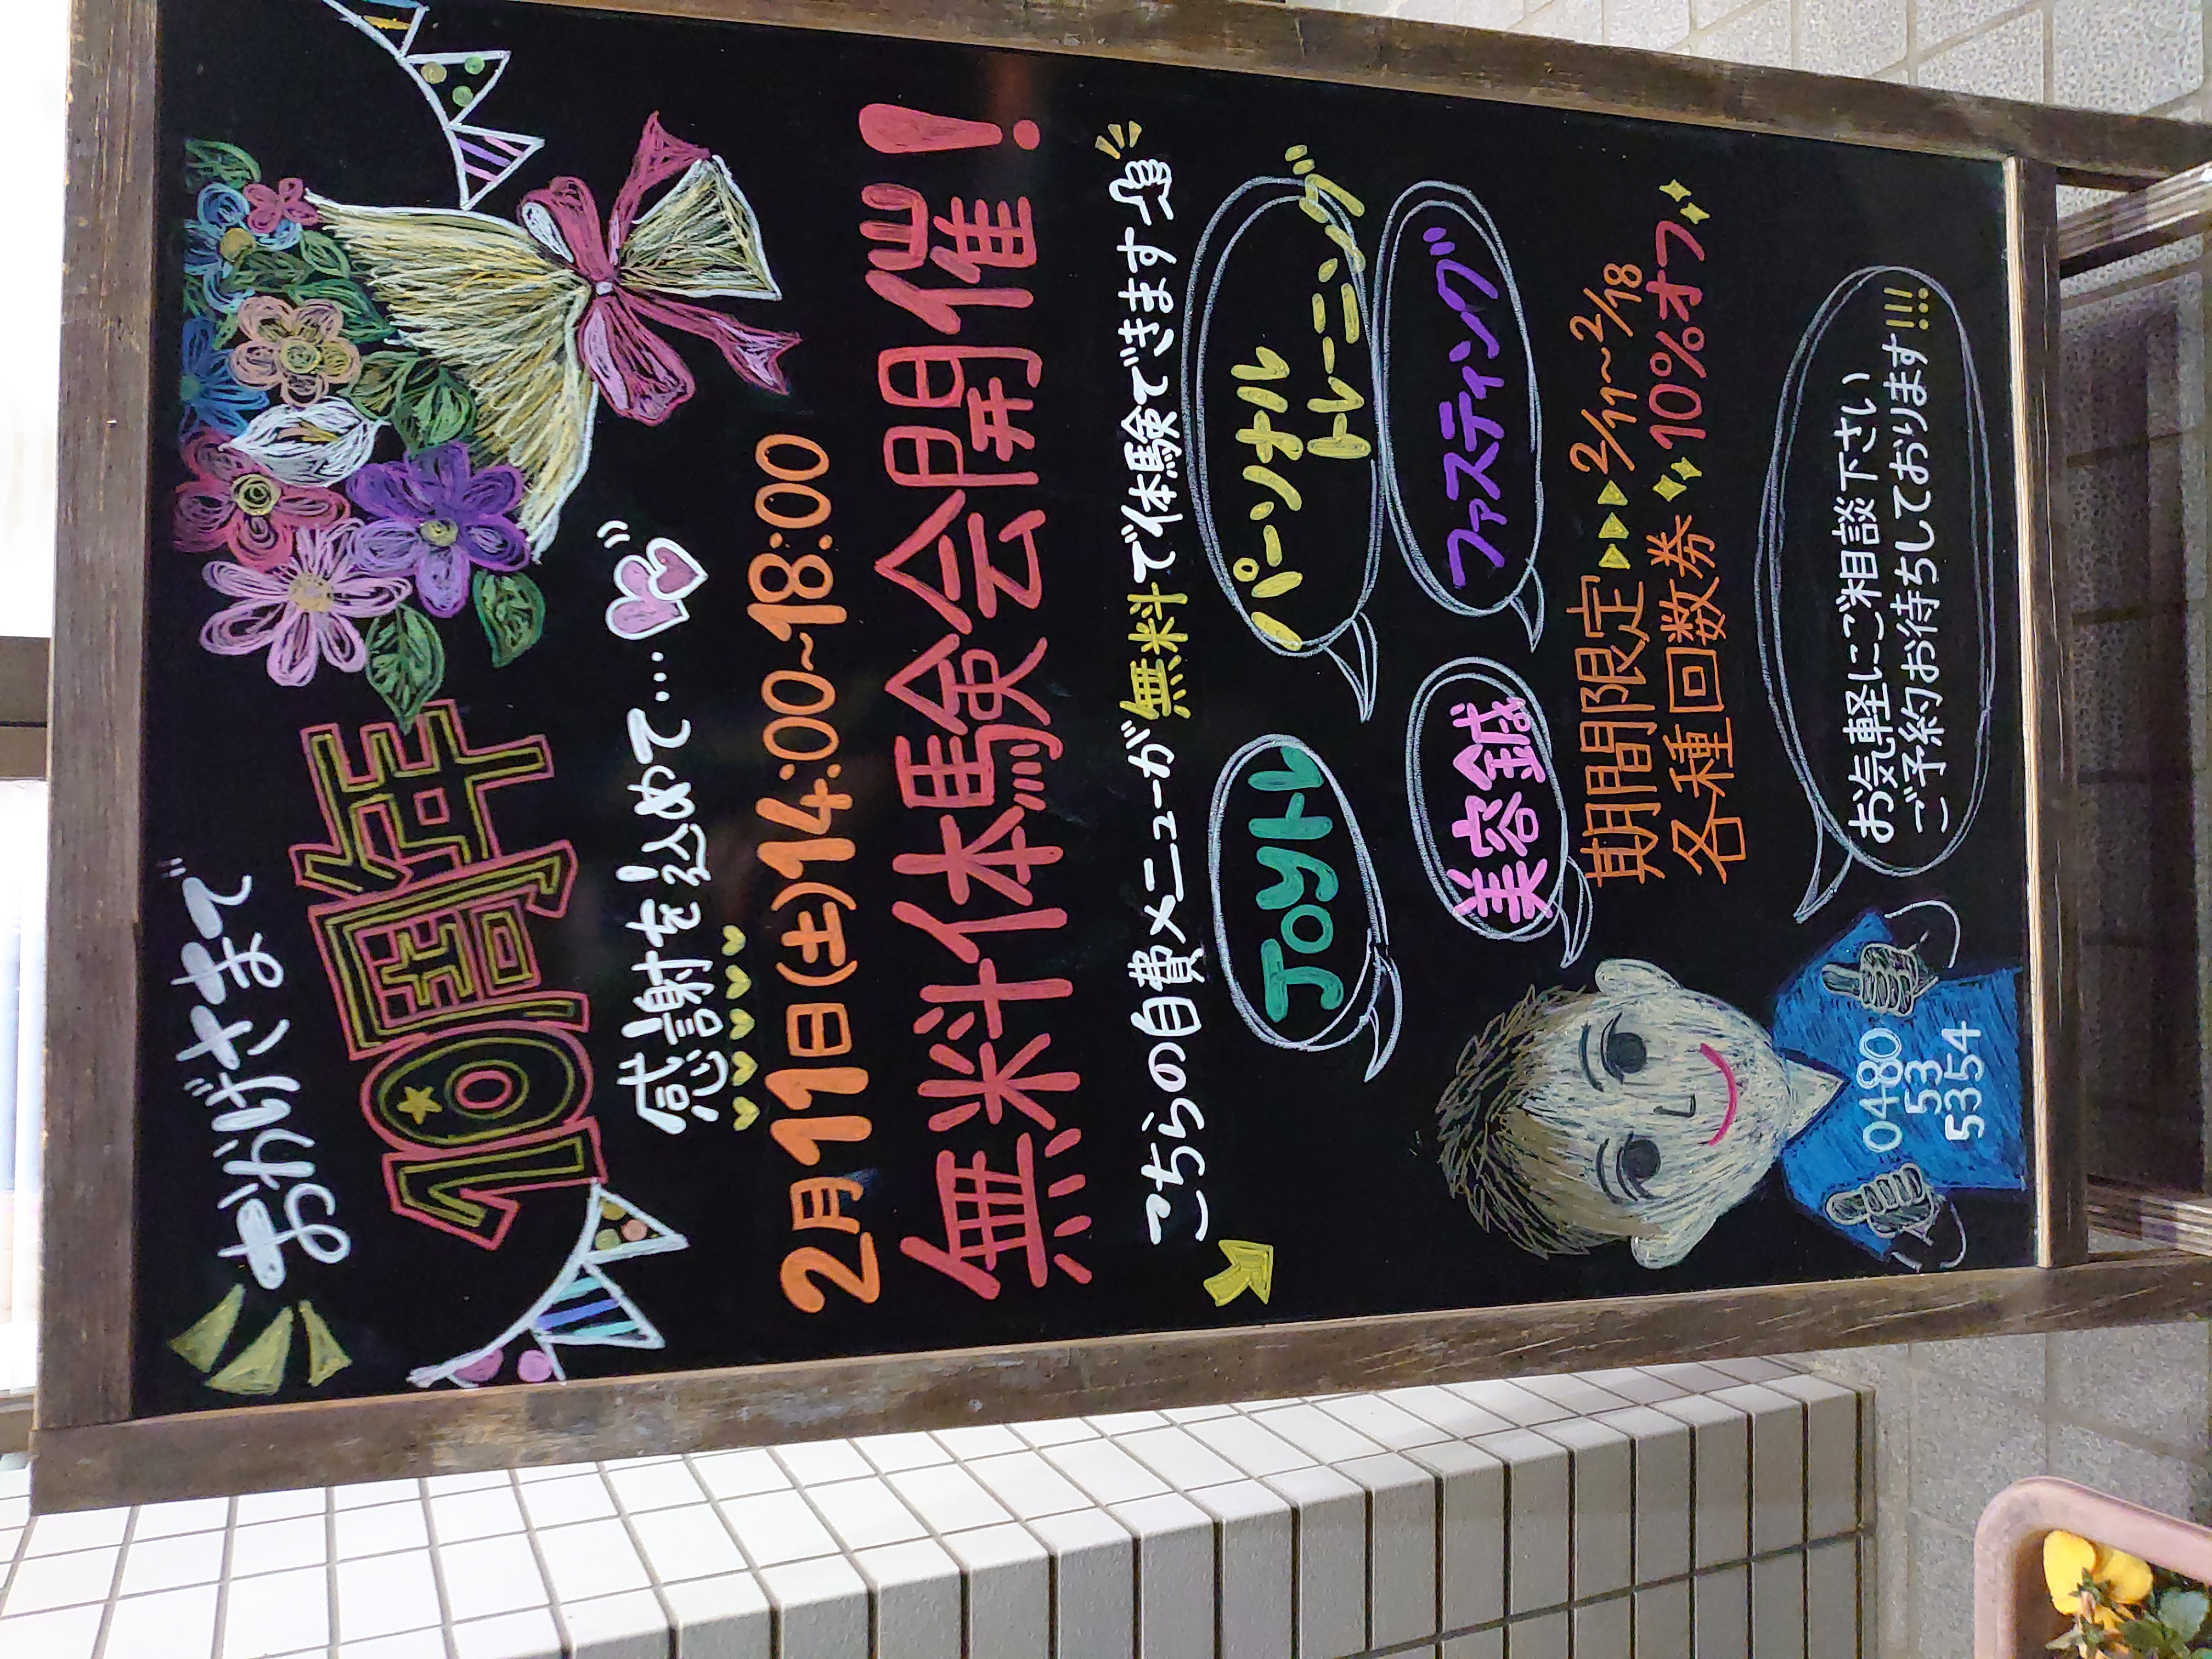 おかげさまで
10周年
感謝を込めて...
2月11日(土)14:00~18:00
無料体験会開催!
こちらの自費メニューが無料で体験できます
Joyトレ
パーソナル
トレーニング
美容鍼
ファスティング
期間限定▶▶▶2/11~2/18
各種回数券 10%オフ
お気軽にご相談下さい
ご予約お待ちしております!!!
0480
53
5354